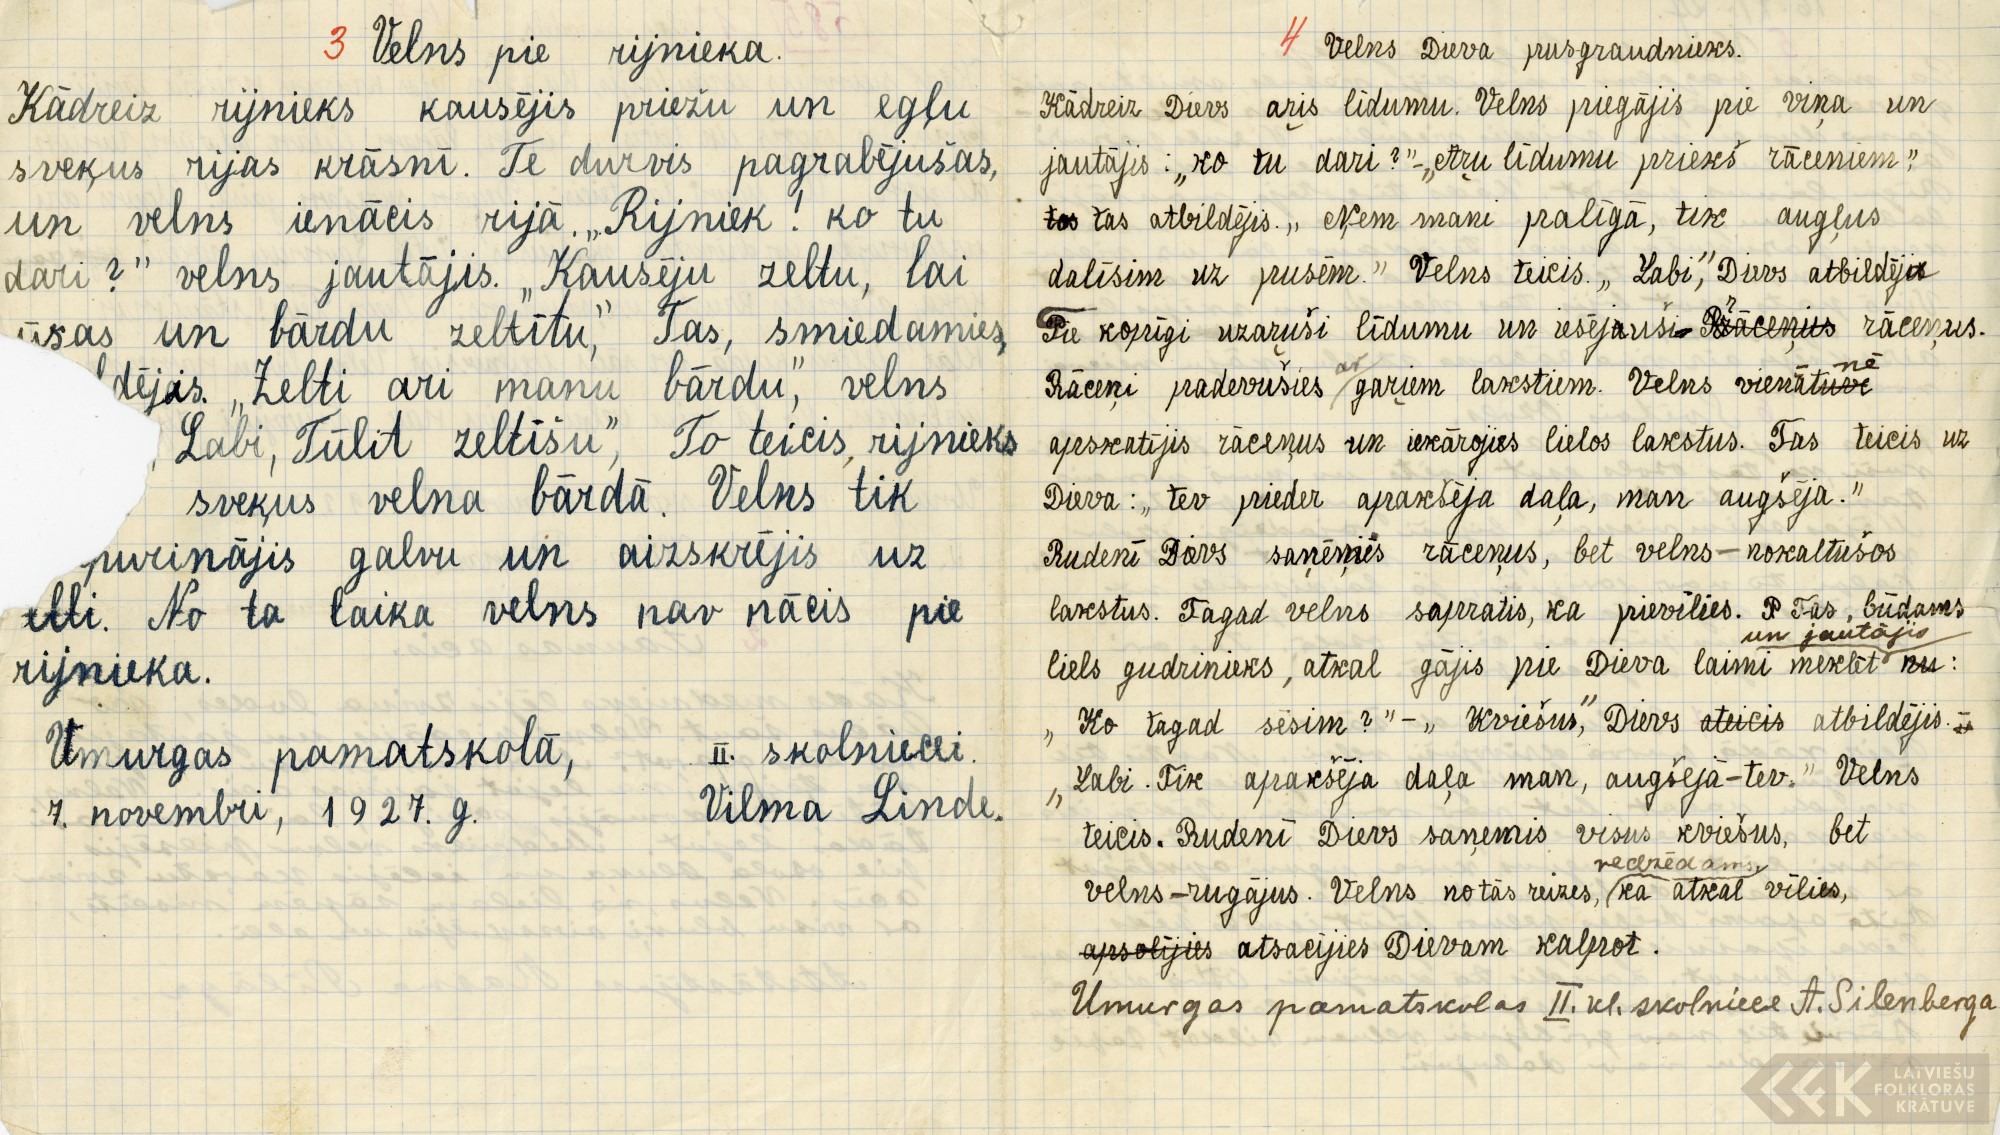 3 Velns pie rijnieka.
Kādreiz rijnieks kausējis priežu un egļu
sveķus rijas krāsnī. Te durvis pagrabējušas,
un velns ienācis rijā. „Rijniek! ko tu
dari?” velns jautājis. „Kausēju zeltu, lai
ūsas un bārdu zeltītu,” Tas, smiedamies,
ldējis. „Zelti ari manu bārdu,” velns
, Labi, Tūlit zeltīšu”, To teicis, rijnieks
sveķus velna bārdā. Velns tik
purinājis galvu un aizskrējis uz
elli. No ta laika velns nav nācis pie
rijnieka.
Umurgas pamatskolā, II. skolniecei.
7. novembri, 1927. g. Vilma Linde.
4 Velns Dieva pusgraudnieks.
Kādreiz Dievs aŗis līdumu. Velns piegājis pie viņa un
jautājis: „ko tu dari?”-„Aŗu līdumu priekš rāceniem”,
tos tas atbildējis. „Ņem mani palīgā, tik augļus
dalīsim uz pusēm.” Velns teicis. „Labi”, Dievs atbildējis
Tie kopīgi uzaŗuši līdumu un iesējuši Rāceņus rāceņus.
Rāceņi padevušies ar gaŗiem lakstiem. Velns vienātuvē nē
apskatījis rāceņus un iekārojies lielos lakstus. Tas teicis uz
Dieva: „tev pieder apakšēja daļa, man augšēja.”
Rudenī Dievs saņēmies rāceņus, bet velns-nokaltušos
lakstus. Tagad velns sapratis, ka pievīlies. P Tas, būdams
liels gudrinieks, atkal gājis pie Dieva laimi meklēt un jautājis nu:
„Ko tagad sēsim?”-„Kviešus”, Dievs ateicis atbildējis.
„Labi. Tik apakšēja daļa man, augšejā-tev.” Velns
teicis. Rudenī Dievs saņemis visus kviešus, bet
velns-rugājus. Velns no tās reizes, redzēdams, ka atkal vīlies,
apsolījies atsacījies Dievam kalpot.
Umurgas pamatskolas II. kl. skolniece A. Silenberga
LATVIEŠU
FOLKLORAS
KRĀTUVE